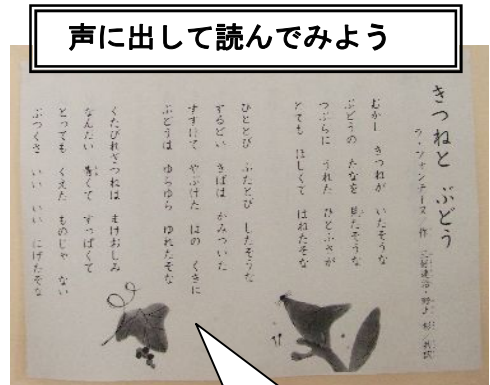 声に出して読んでみよう
きつねと ぶどう
ラ・フォンテーヌ/作
むかし きつねが いたそうな
ぶどうの たなを 見たそうな
つぶらに うれた ひとふさが
とても ほしくて はねたそな
ひととび ふたとび したそうな
するどい きばは かみついた
すすけて やぶけた はの くきに
ぶどうは ゆらゆら ゆれたそな
くたびれぎつねは まけおしみ
なんたい 青くて すっぱくて
とっても くえた ものじゃ ない
ぶつくさ いい いい にげたそな